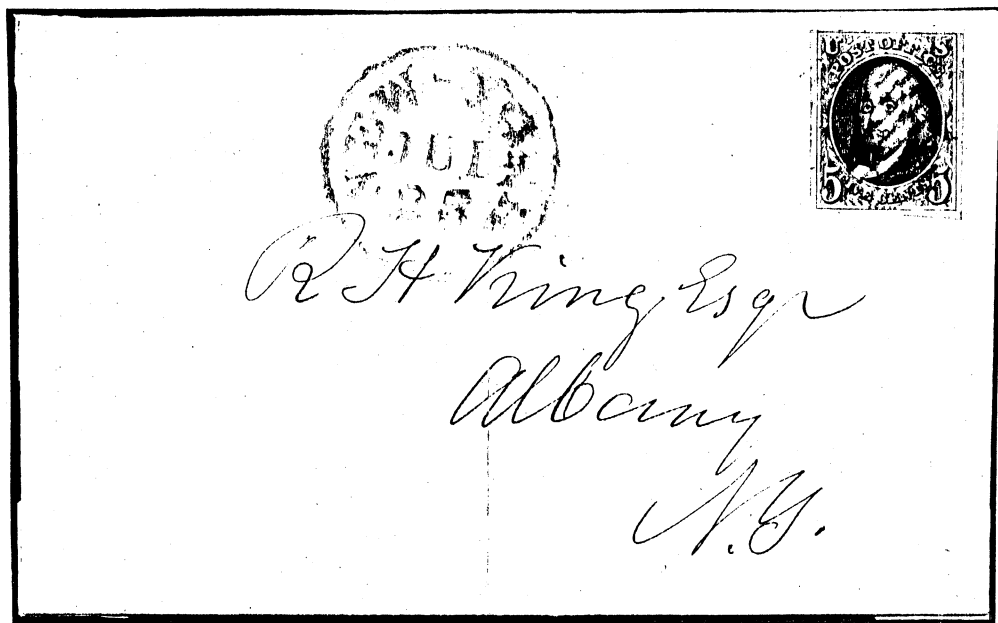 U S
POST OFFICE
5 5
R H King, Esqr
Albany
N.Y.